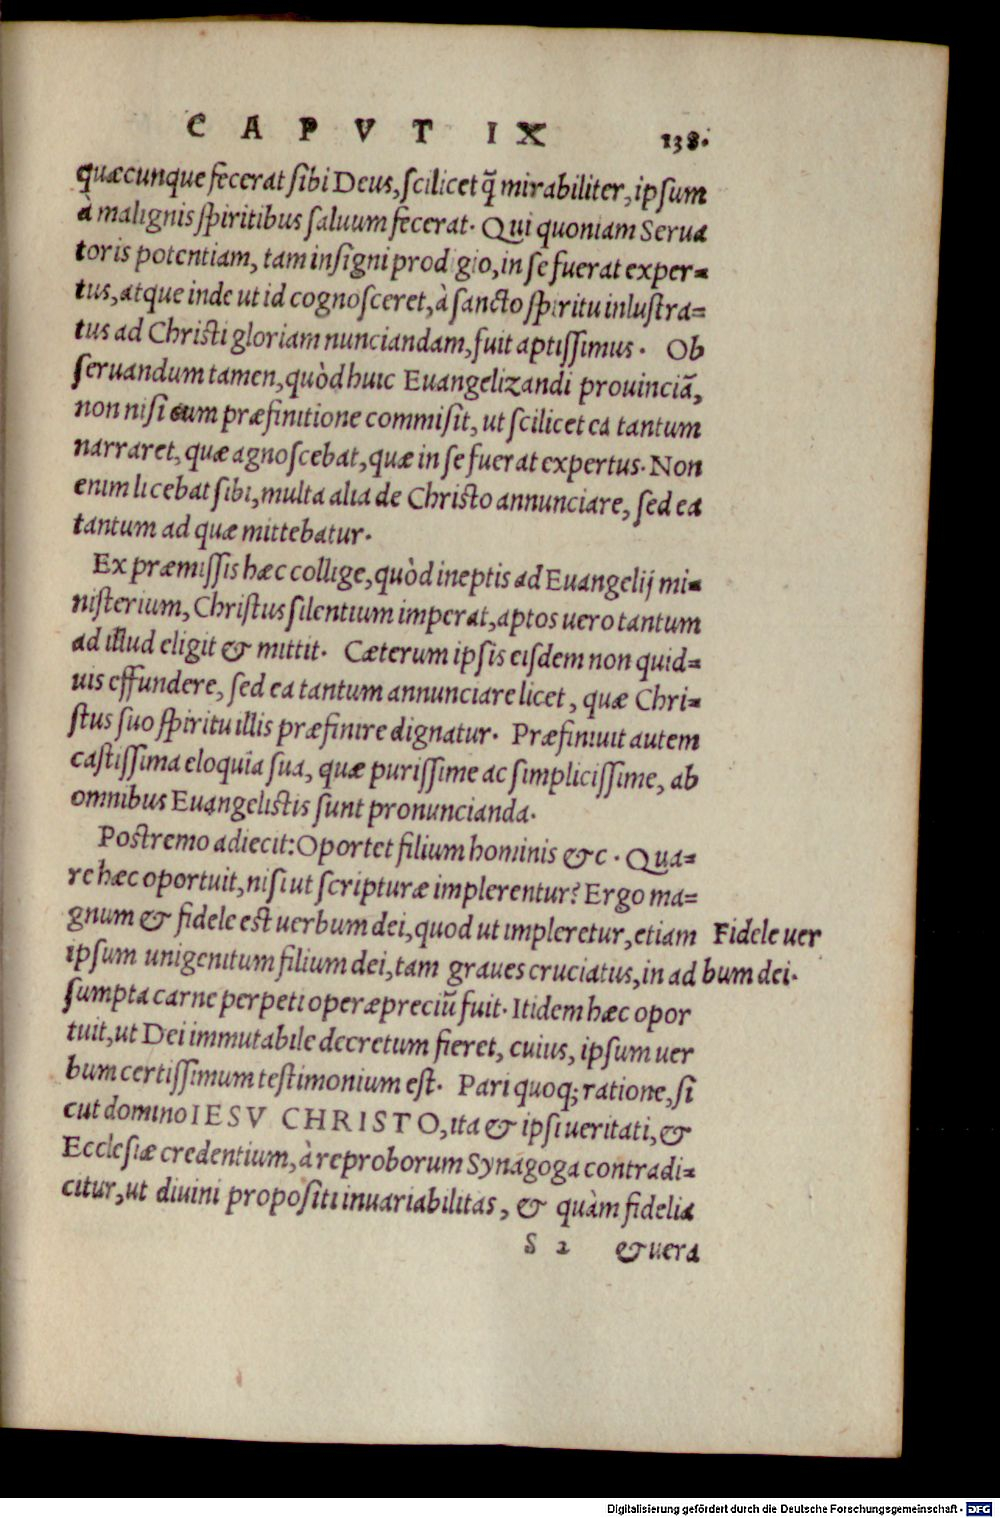 CAPVT IX 138.
quæcunque fecerat sibi Deus, scilicet q̃ mirabiliter, ipsum
à malignis spiritibus saluum fecerat. Qui quoniam Serua
toris potentiam, tam insigni prodigio, in se fuerat exper=
tus, atque inde ut id cognosceret, à sancto spiritu inlustra=
tus ad Christi gloriam nunciandam, fuit aptissimus. Ob
seruandum tamen, quòd huic Euangelizandi prouinciã,
non nisi cum præfinitione commisit, ut scilicet ea tantum
narraret, quæ agnoscebat, quæ in se fuerat expertus. Non
enim licebat sibi, multa alia de Christo annunciare, sed ea
tantum ad quæ mittebatur.
Ex præmissis hæc collige, quòd ineptis ad Euangelij mi=
nisterium, Christus silentium imperat, aptos uero tantum
ad illud eligit & mittit. Cæterum ipsis eisdem non quid=
uis effundere, sed ea tantum annunciare licet, quæ Chri=
stus suo spiritu illis præfinire dignatur. Præfiniuit autem
castissima eloquia sua, quæ purissime ac simplicissime, ab
omnibus Euangelistis sunt pronuncianda.
Postremo adiecit: Oportet filium hominis &c. Qua=
re hæc oportuit, nisi ut scripturæ implerentur? Ergo ma=
gnum & fidele est uerbum dei, quod ut impleretur, etiam
ipsum unigenitum filium dei, tam graues cruciatus, in ad
sumpta carne perpeti operæpreciũ fuit. Itidem hæc opor
tuit, ut Dei immutabile decretum fieret, cuius, ipsum uer
bum certissimum testimonium est. Pari quoq; ratione, si
cut domino IESV CHRISTO, ita & ipsi ueritati, &
Ecclesiæ credentium, à reproborum Synagoga contradi=
citur, ut diuini propositi inuariabilitas, & quàm fidelia
S 2 & uera
Fidele uer
bum dei.
Digitalisierung gefördert durch die Deutsche Forschungsgemeinschaft - DFG